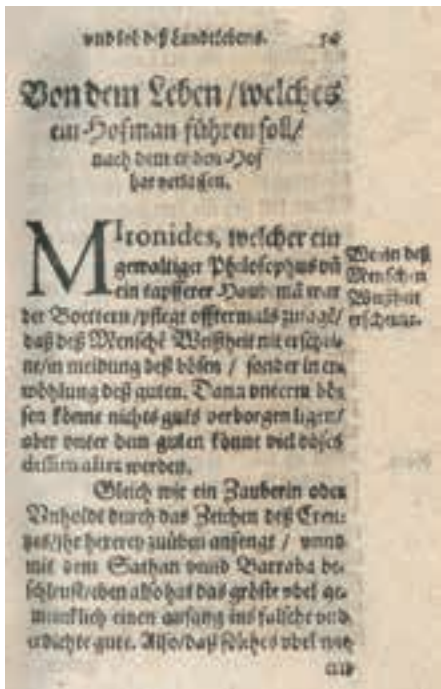 vnd lob deß Landtlebens. 54
Von dem Leben / welches
ein Hofman führen soll /
nach dem er den Hof
hat verlassen.
MIronides, welcher ein
gewaltiger Philosophus vñ
ein tapfferer Haubtmã war
der Boettern / pflegt offtermals zusagẽ /
daß deß Menschẽ Weißheit nit erschei-
ne / in meidung deß bösen / sonder in er-
wöhlung deß guten. Dañ vnterm bö-
sen könne nichts guts verborgen ligen /
aber vnter dem guten könnt viel böses
werden.
Worin deß
Menschen
Weißheit
erscheine.
Gleich wie ein Zauberin oder
Vnholdt durch das Zeichen deß Creu-
tzes / jhr hexerey zuüben anfengt / vnnd
mit dem Sathan vnnd Barraba be-
schleust / eben also hat das gröste vbel ge-
meinklich einen anfang ins falsche vnd
erdichte gute. Also / daß solches vbel